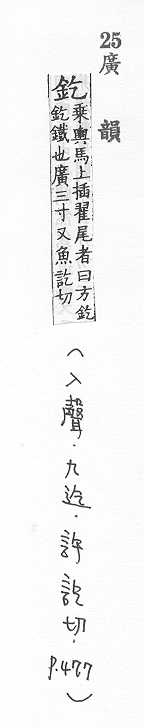 25廣韻
釳乘輿馬上插翟尾者曰方釳
釳鐵也廣三寸又魚訖切
（入聲．九迄．許訖切．P.477）